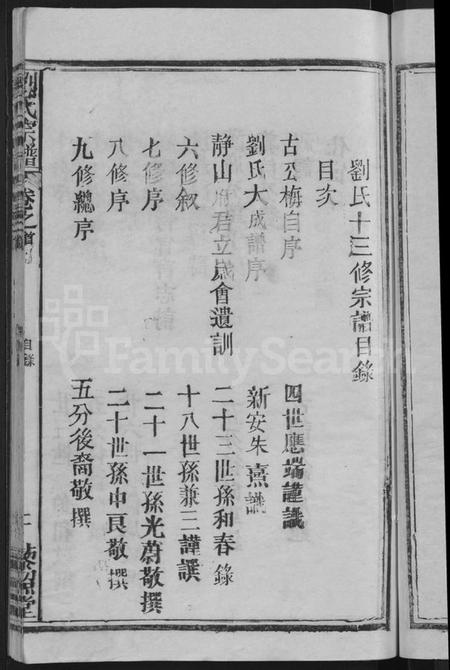 劉氏十三修宗譜目錄
目次
古公梅自序 四世應端謹識
劉氏大成譜序 新安朱熹識
靜山府君立歲會遺訓 二十三世孫和春錄
六修敘 十八世孫兼三謹譔
七修序 二十一世孫光蔚敬撰
八修序 二十世孫申良敬撰
九修總序 五分後裔敬撰
劉氏宗譜
卷之首
目錄
二
藜照堂
FamilySearch